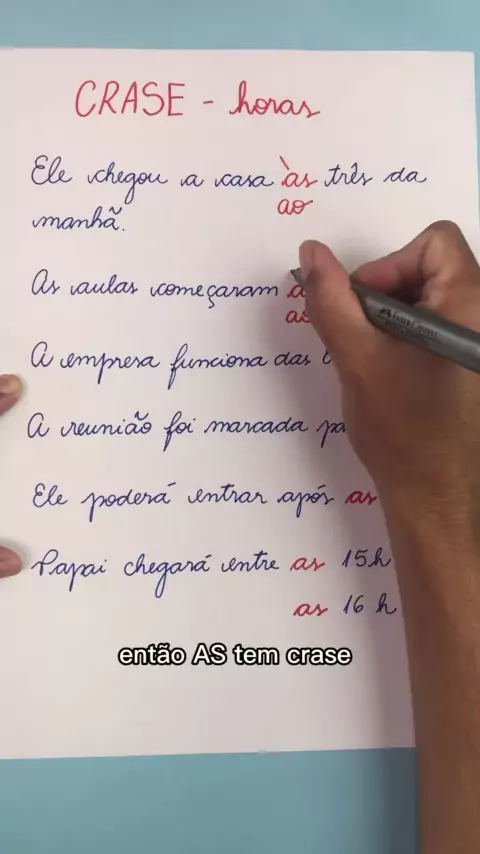 CRASE - horas
Ele chegou a casa às três da
ao
manhã.
As aulas começaram
A empresa funciona das
A reunião foi marcada
Ele poderá entrar após as
Papai chegará entre as 15h
as 16 h
então AS tem crase